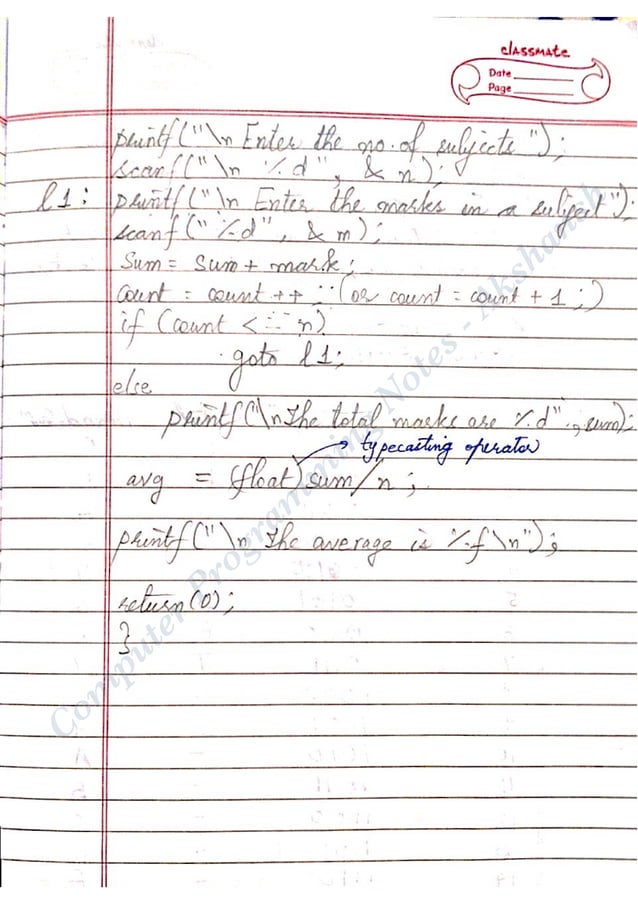 classmate
Date
Page
printf("\n Enter the no. of subjects");
scanf("\n %d", & n);
l1: printf("\n Enter the marks in a subject");
scanf("%d", & m);
Sum = sum + mark;
Count = count ++ ; (or count = count + 1 ;)
if (count <= n)
goto l1;
else
printf("\n The total marks are %d", sum);
typecasting operator
avg = (float) sum/n;
printf("\n The average is %f \n");
return(0);
}
Computer Programming Notes - Akshansh